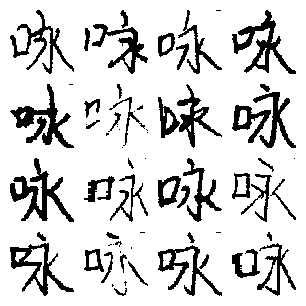 咏咏咏咏
咏咏咏咏
咏咏咏咏
咏咏咏咏